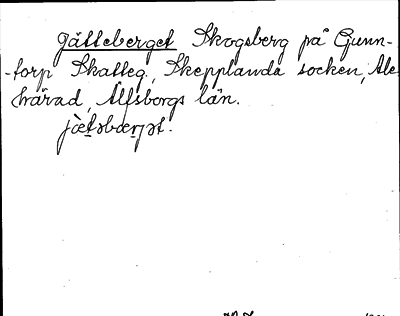 Gätteberget Skogsberg på Gunn-
-torp Skatteg., Skepplanda socken, Ale
härad, Älfsborgs län.